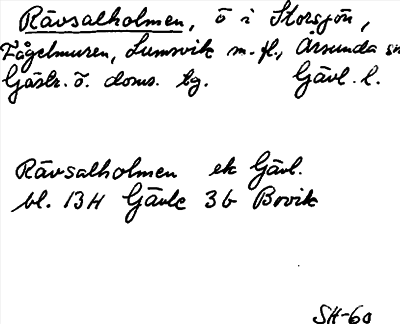 Rävsalholmen, ö i Storsjön,
Fågelmuren, Lumsvik m.fl., Årsunda sn
Gästr. ö. doms. tg. Gävl. l.
Rävsalholmen ek Gävl.
bl. 13H Gävle 3b Bovik
SH-60